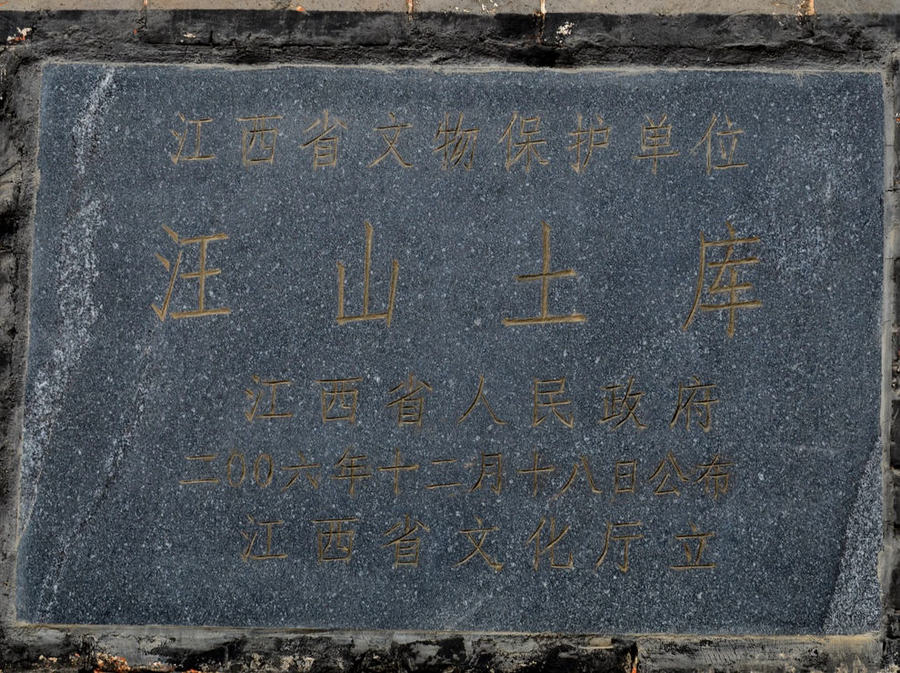 江西省文物保护单位
汪山土库
江西省人民政府
二00六年十二月十八日公布
江西省文化厅立